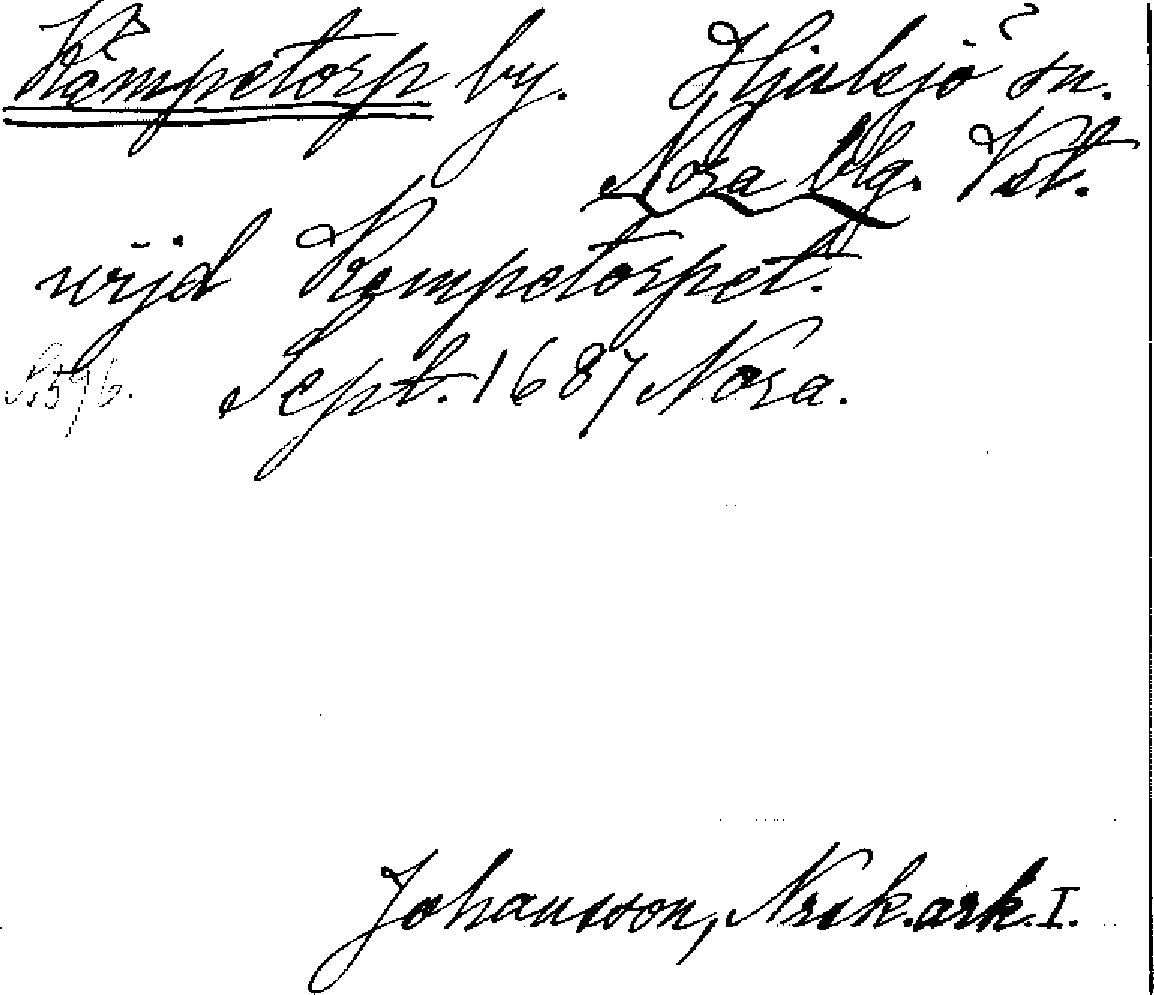 Kämpetorp by. Hjulsjö sn.
Nora blg. Vstl.
wijd Kempetorpet.
S. 596. Sept. 1687 Nora.
Johansson, Nrsk. ark. I.